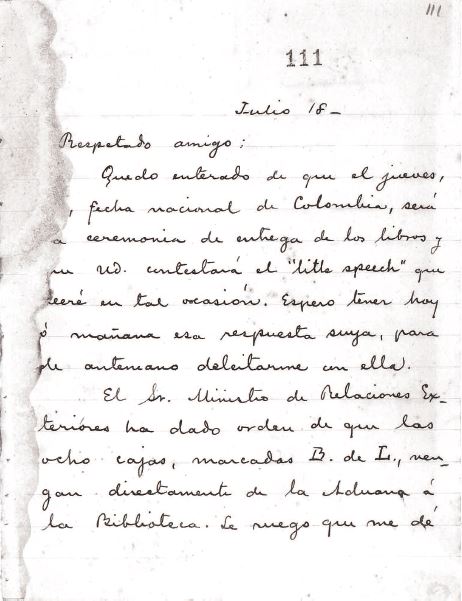 111
111
Julio 18-
Respetado amigo:
Quedo enterado de que el jueves,
, fecha nacional de Colombia, será
a ceremonia de entrega de los libros y
ue Ud. contestará el "little speech" que
leeré en tal ocasión. Espero tener hoy
ó mañana esa respuesta suya, para
de antemano deleitarme con ella.
El Sr. Ministro de Relaciones Ex-
teriores ha dado orden de que las
ocho cajas, marcadas B. de L., ven-
gan directamente de la Aduana á
la Biblioteca. Le ruego que me dé